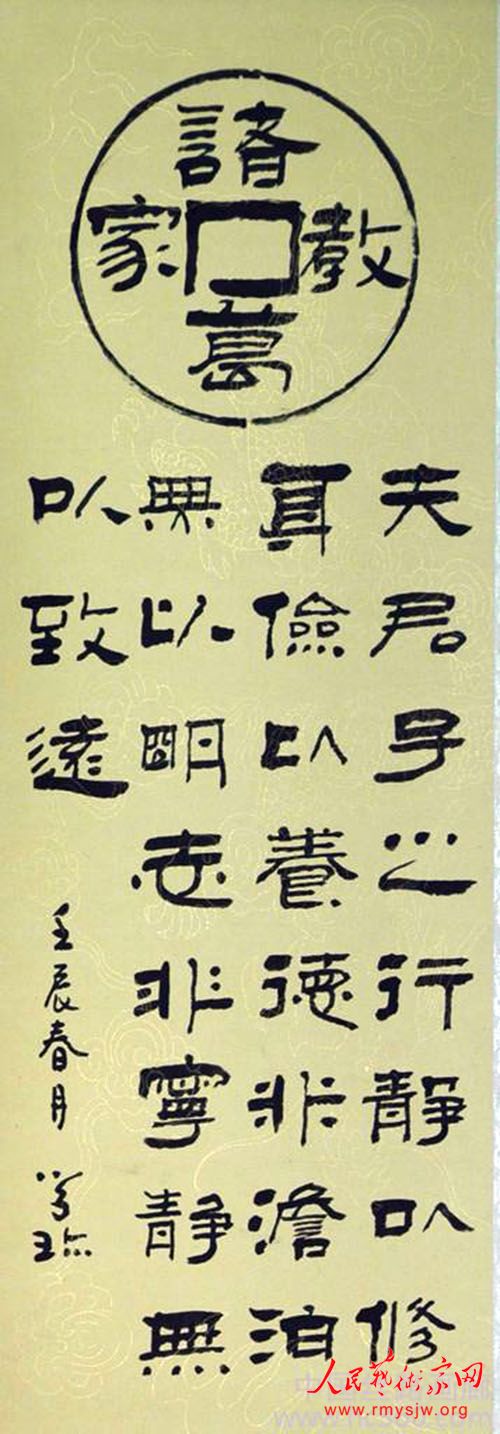 諸葛家教
夫君子之行靜以修
身儉以養德非澹泊
無以明志非寧靜無
以致遠
壬辰春月
人民藝術家网
www.rmysjw.org